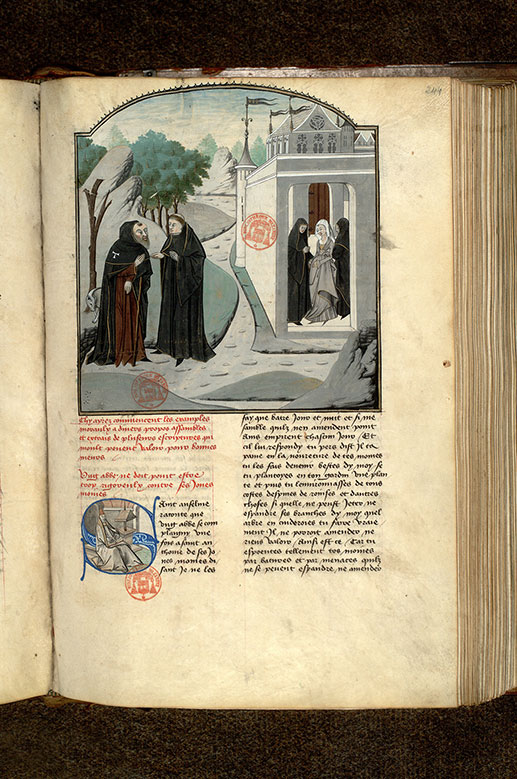 244
Chy apres commencent les exemples
moraulx a divers propos assambles
et extrais de pluseurs escriptures qui
moult pevent valoir pour bonnes
meurs
Ung abbe ne doit point estre
trop rigoreulx contre ses jones
moines
Saint anselme
raconte que
ung abbe se com
plaigny une
fois a saint an
thoine de ses jo
nes moines di
sant Je ne les
fay que batre jour et nuit et si me
samble quilz nen amendent point
Ains empirent chascun jour Et
cil luy respondy tu pers dist il ta
paine en la nourreture de tes moines
tu les fais devenir bestes dy moy se
tu plantoyes en ton gardin une plan
te et puis tu lenvironnasses de tous
costes despines de ronsses et dautres
choses si quelle ne peust jecter ne
espandre ses branches dy moy quel
arbre en cuideroies tu faire vraie
ment il ne porroit amender ne
riens valoir Ainsi est ce Car tu
espoentes tellement tes moines
par bateures et par menaces quilz
ne se pevent espandre ne amender